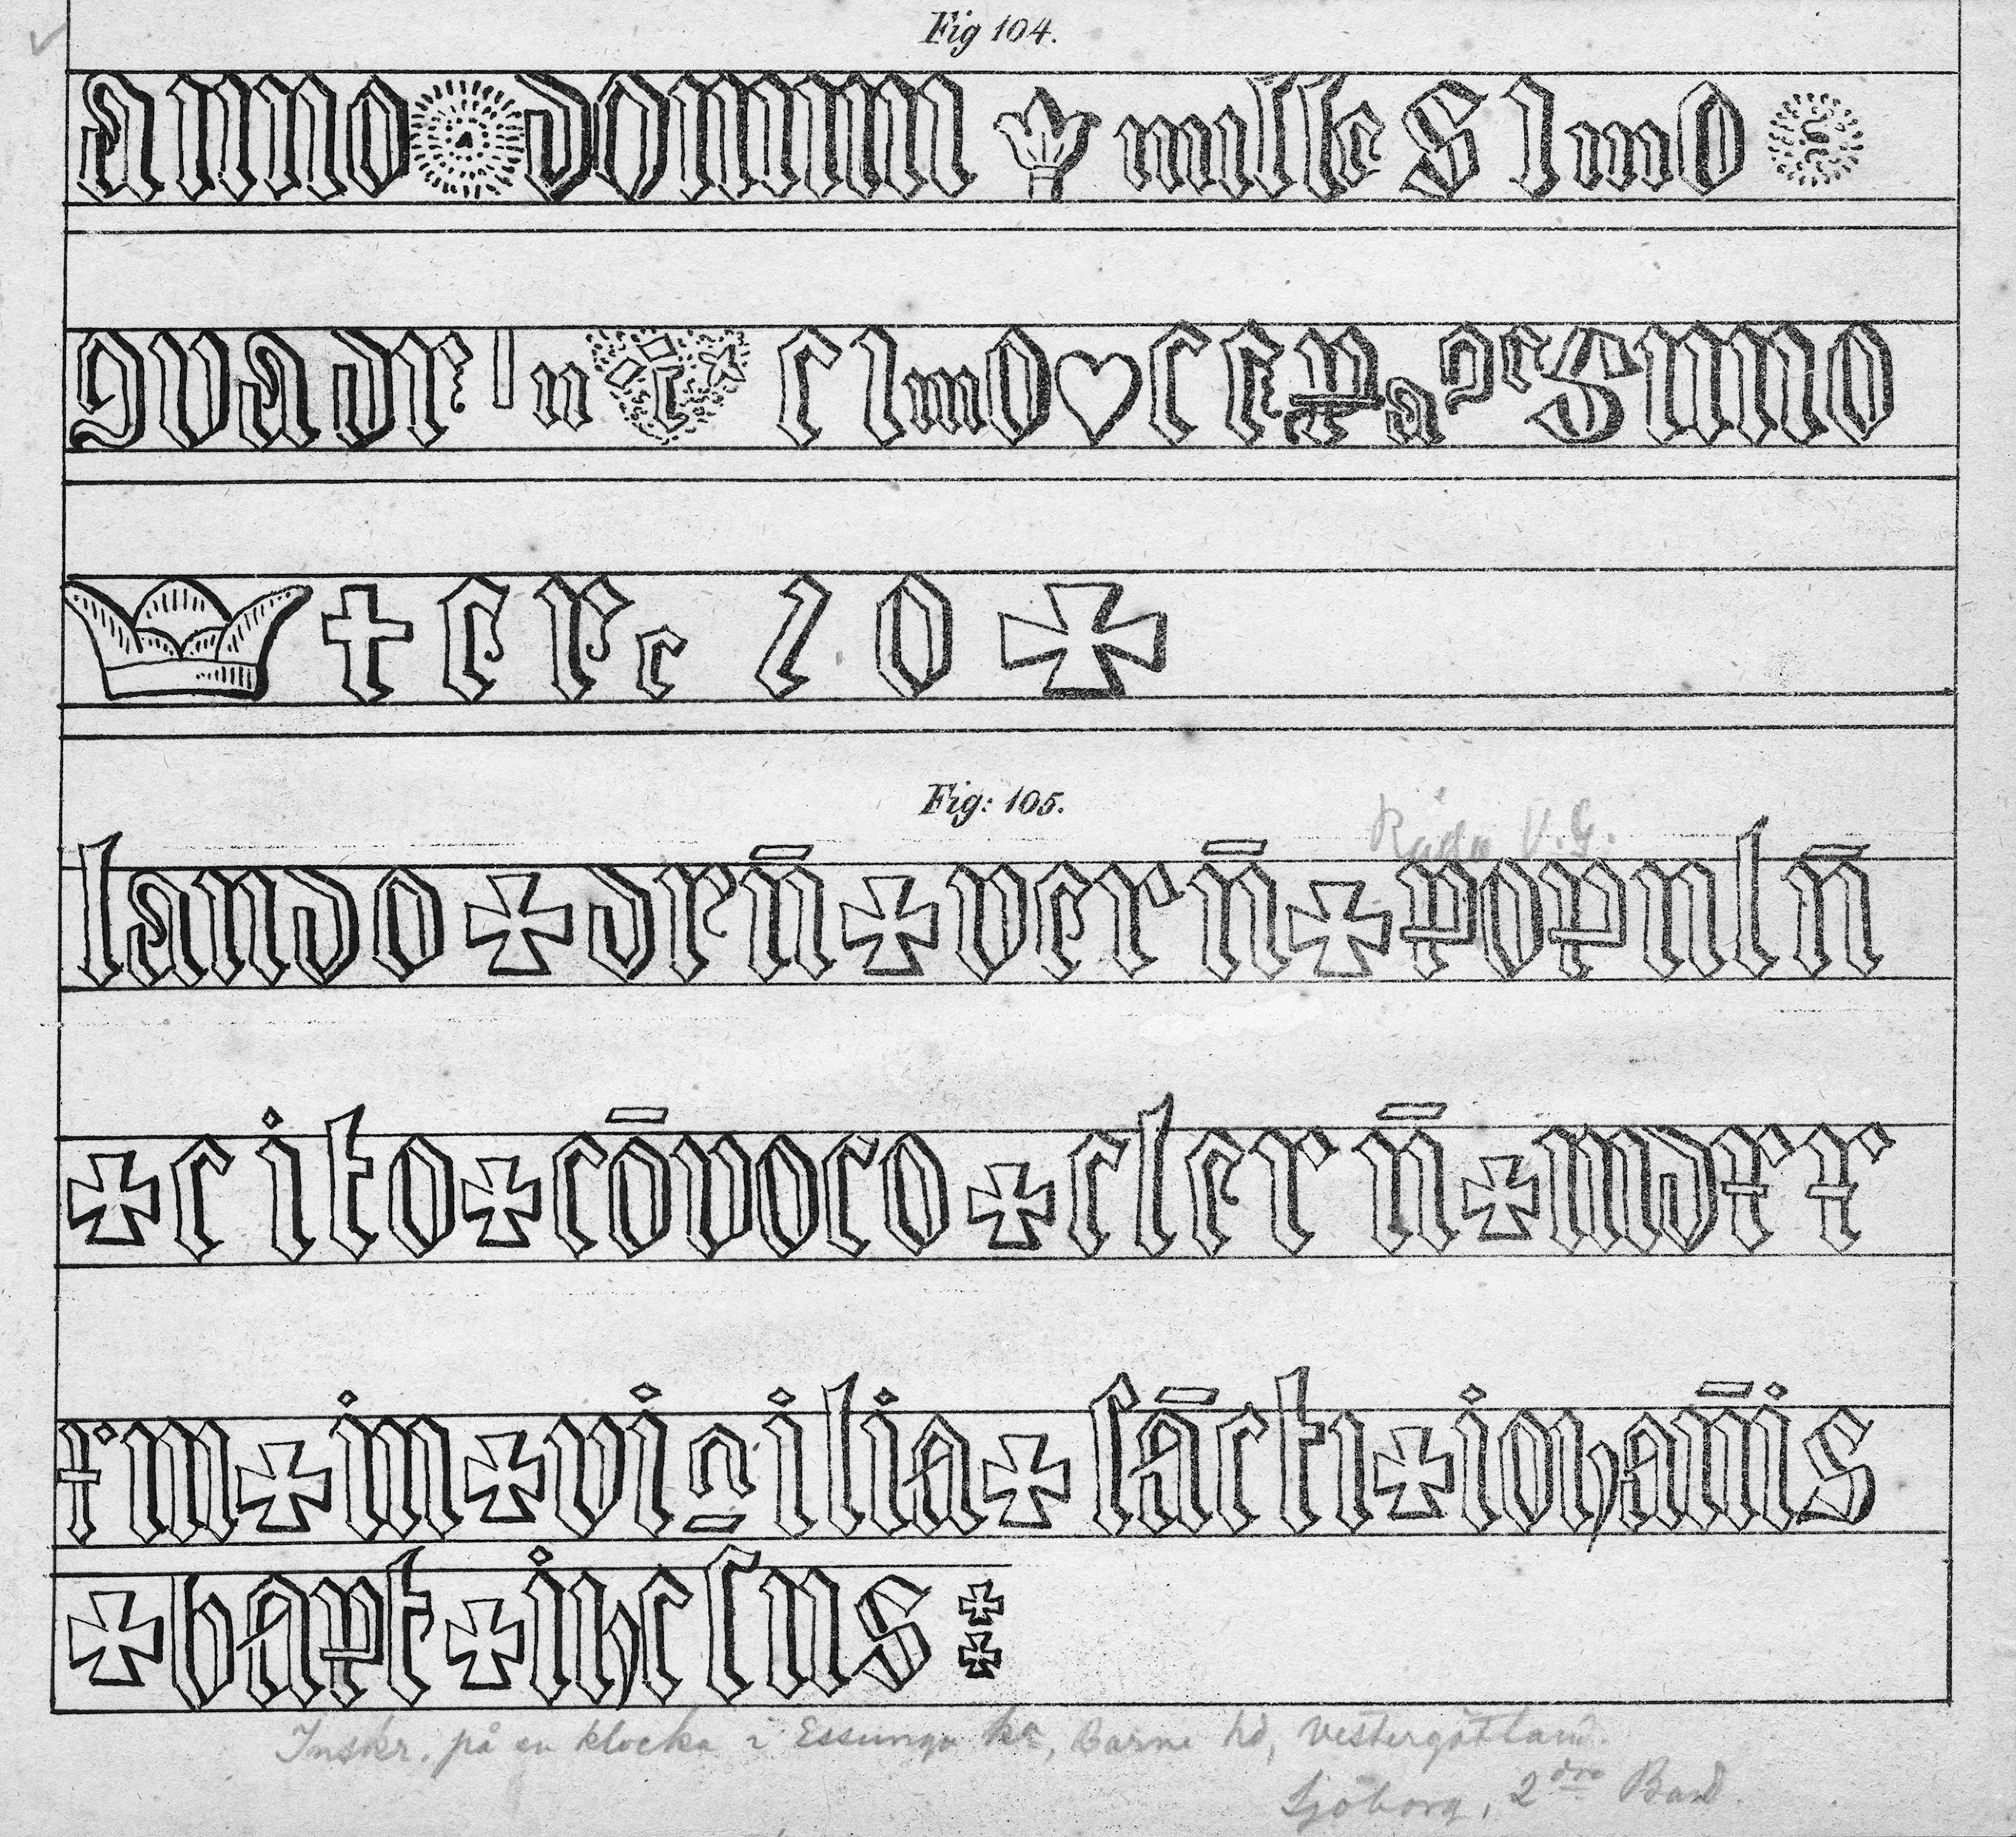 Fig 104.
anno domini millesimo
quadrin c simo c e p a
t e r c i o
Fig: 105.
Råda V.G.
laudo + deū + verū + populū
+ cito + cōvoco + clerū + mdxx
xm + in + vigilia + sācti + iohānis
+ bapt + ihesus
Inskr. på en klocka i Essunga kr, Barne hd, Vestergötland.
Sjöborg, 2dra Band.